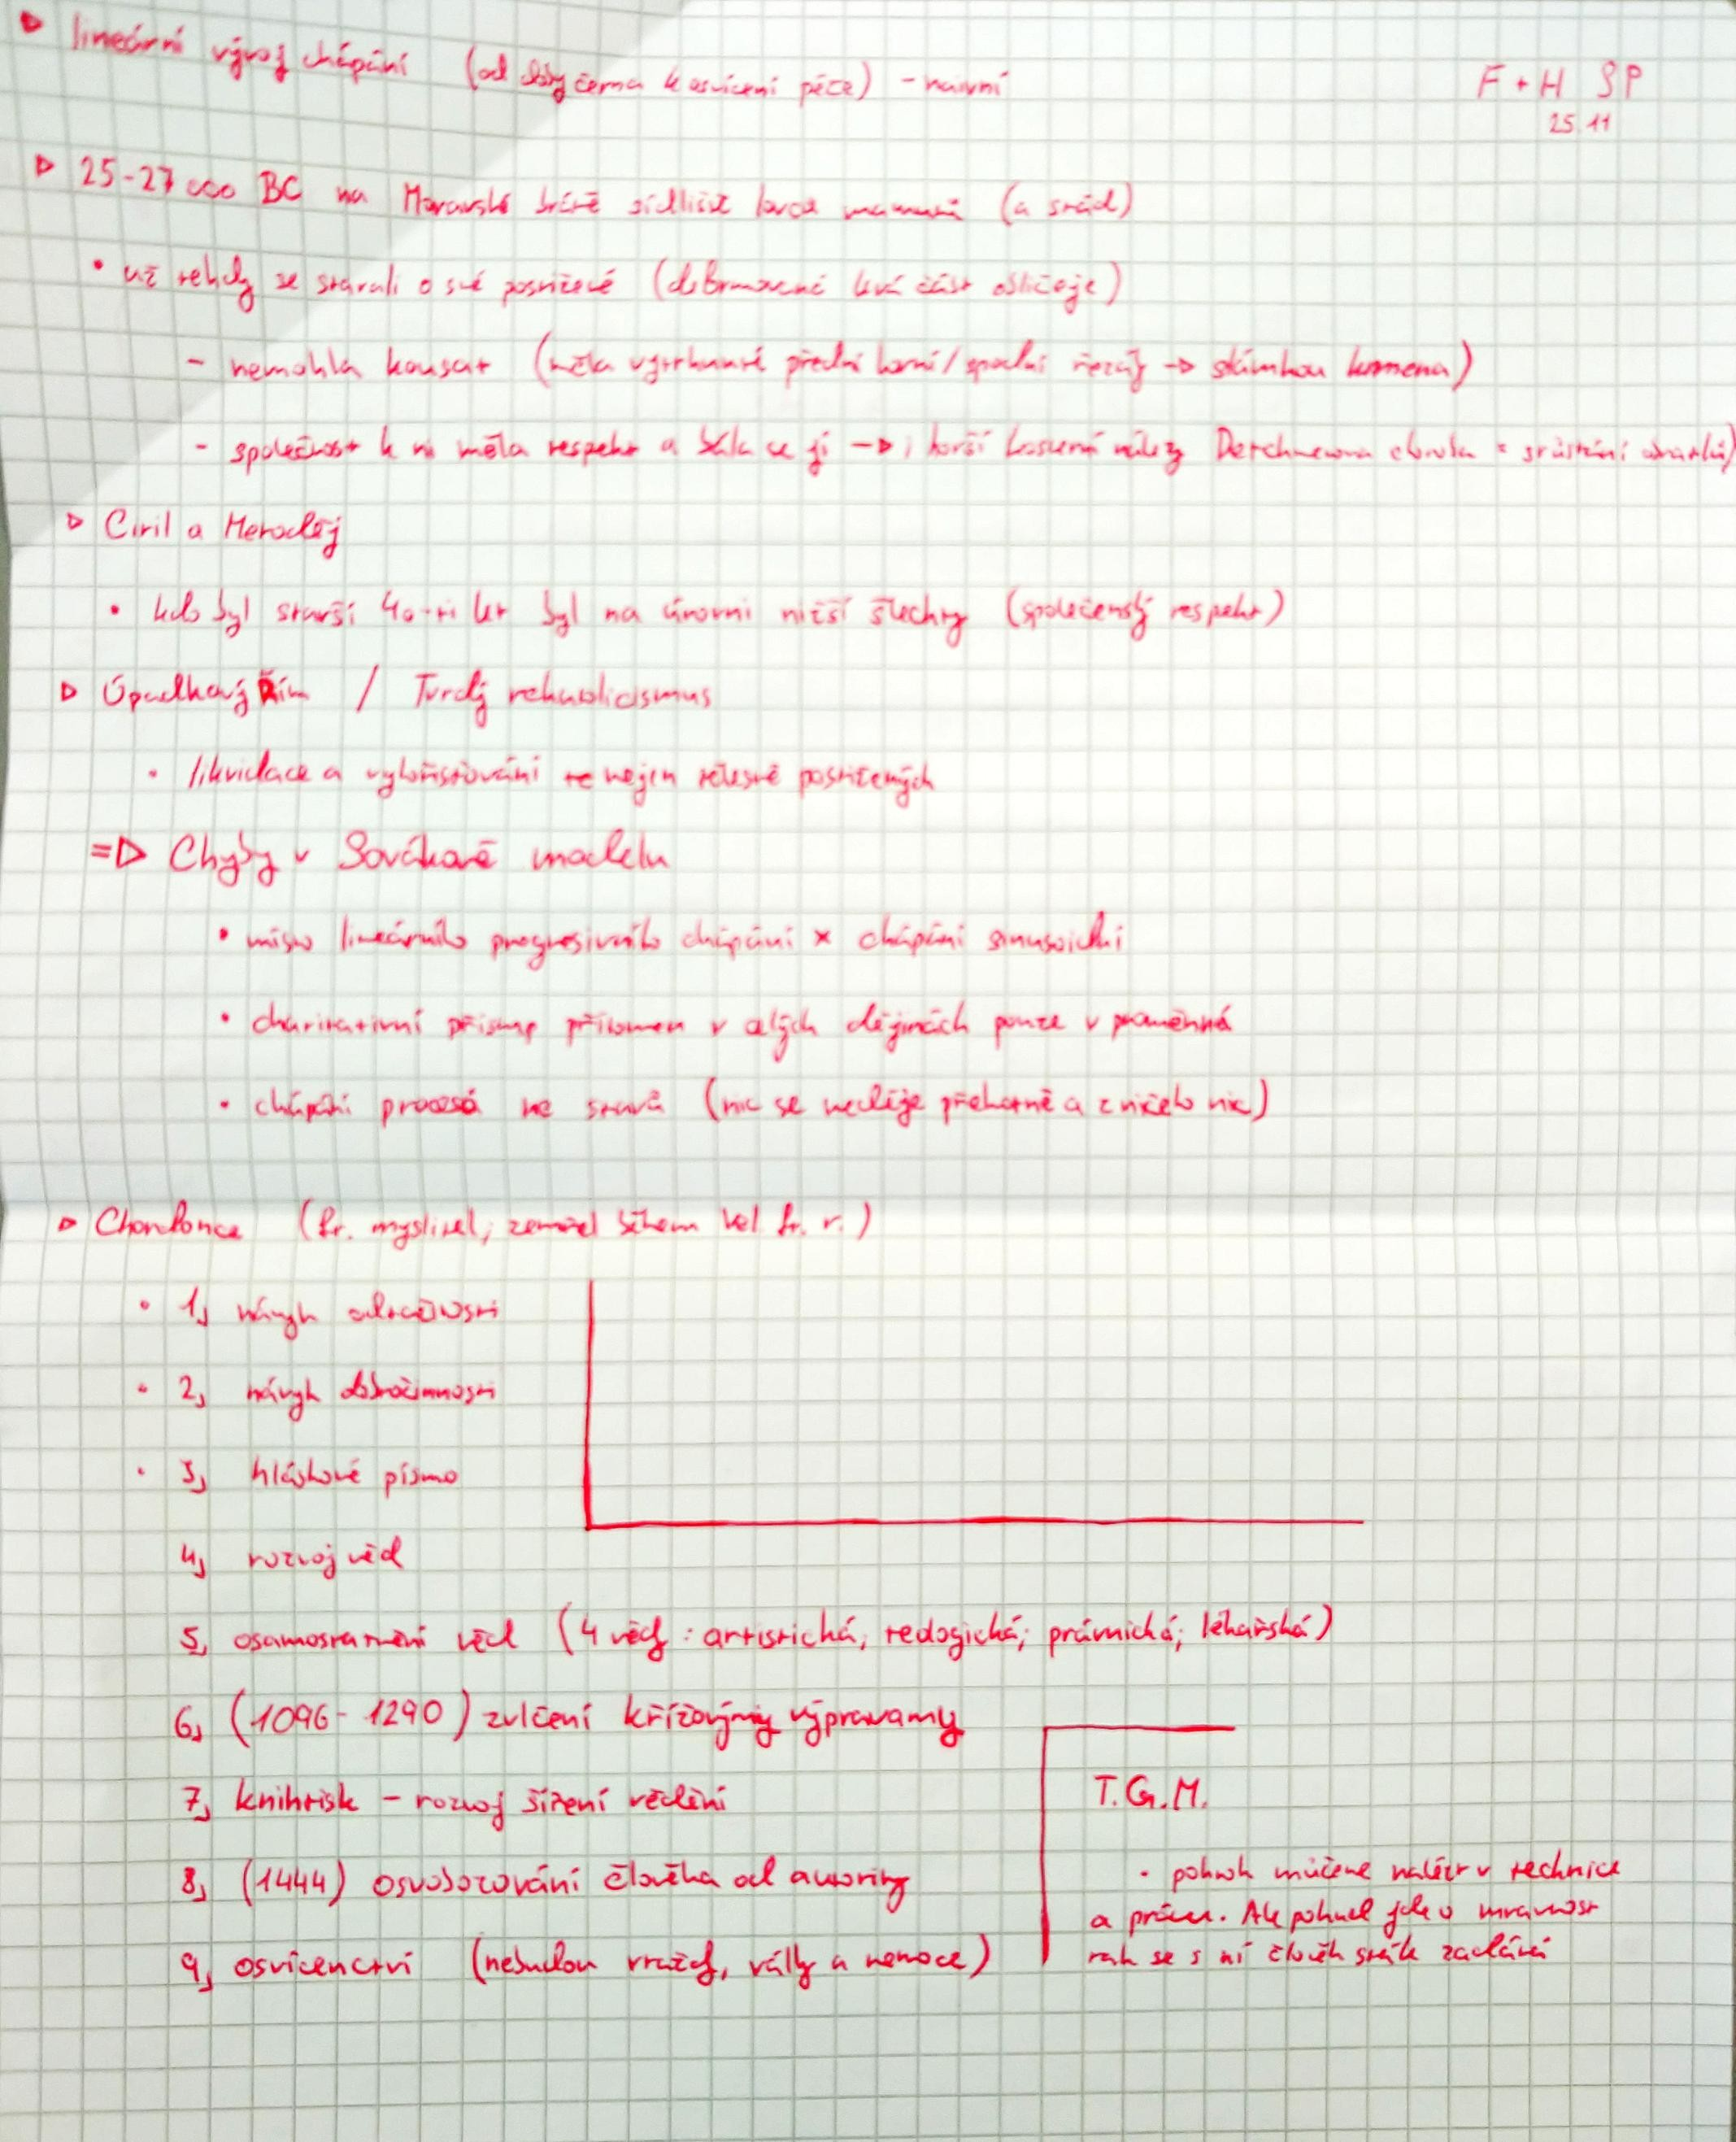 ▷ lineární vývoj chápání (od doby černa k osvícení péče) - naivní
F + H SP
25.11
▷ 25-27 000 BC na Moravské bráně sídliště lovců mamutů (a stád)
• už tehdy se starali o své postižené (deformovaná levá část obličeje)
- nemohla kousat (měla vytrhnuté přední horní/spodní řezáky → slámkou krmena)
- společnost k ní měla respekt a bála se jí → i horší kosterní nálezy choroba = srůstání obratlů)
▷ Ciril a Metoděj
• kdo byl starší 40-ti let byl na úrovni nižší šlechty (společenský respekt)
▷ Úpadkový Řím / Tvrdý
• likvidace a vykořisťování ne nejen tělesně postižených
=▷ Chyby v Sovákově modelu
• místo lineárního progresivního chápání × chápání sinusoidní
• charitativní přístup přítomen v celých dějinách pouze v proměnná
• chápání procesů ne stavů (nic se neděje překotně a z ničeho nic)
▷ (fr. myslitel; zemřel během Vel. fr. r.)
• 1, návyk
• 2, návyk dobročinnosti
• 3, hláskové písmo
4, rozvoj věd
5, osamostatnění věd (4 vědy: artistická; teologická; právnická; lékařská)
6, (1096 - 1290) zvlčení křížovými výpravamy
7, knihtisk - rozvoj šíření vědění
8, (1444) osvobozování člověka od autority
9, osvícenctví (nebudou vraždy, války a nemoce)
T.G.M.
• pokrok můžeme nalézt v technice
a práci. Ale pokud jde o mravnost
tak se s ní člověk stále